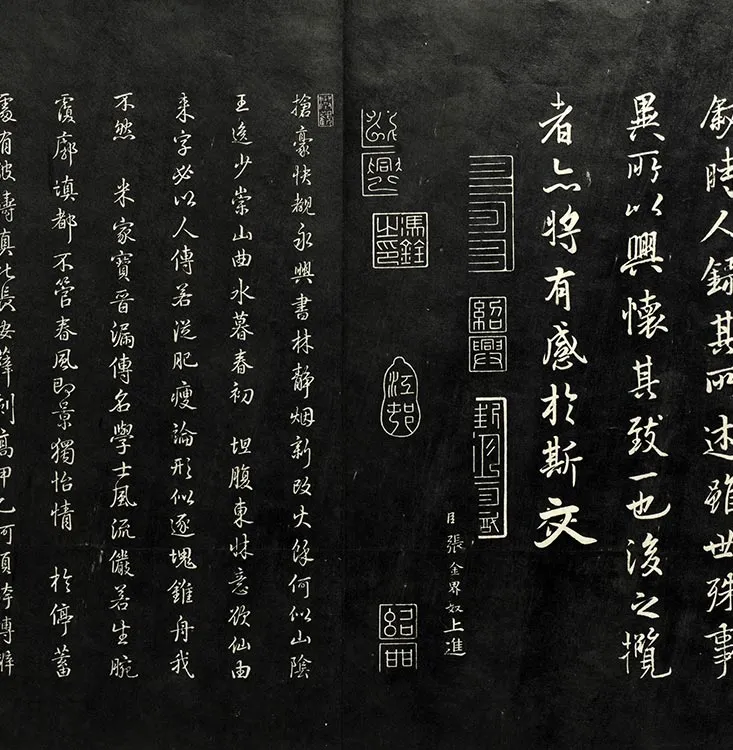 敘時人錄其所述雖世殊事
異所以興懷其致一也後之攬
者亦將有感於斯文
紹興
臣張金界奴上進
馮銓之印
江邨
搶豪快覩永興書林靜烟新改火餘何似山陰
王逸少崇山曲水暮春初 坦腹東牀意欲仙由
來字必以人傳若從肥瘦論形似逐塊雖舟我
不然 米家寶晉漏傳名學士風流儼若生腕
後廓填都不管春風即景獨怡情 於停蓄
處有波濤真比長安薛刻高甲乙何須誇博辯